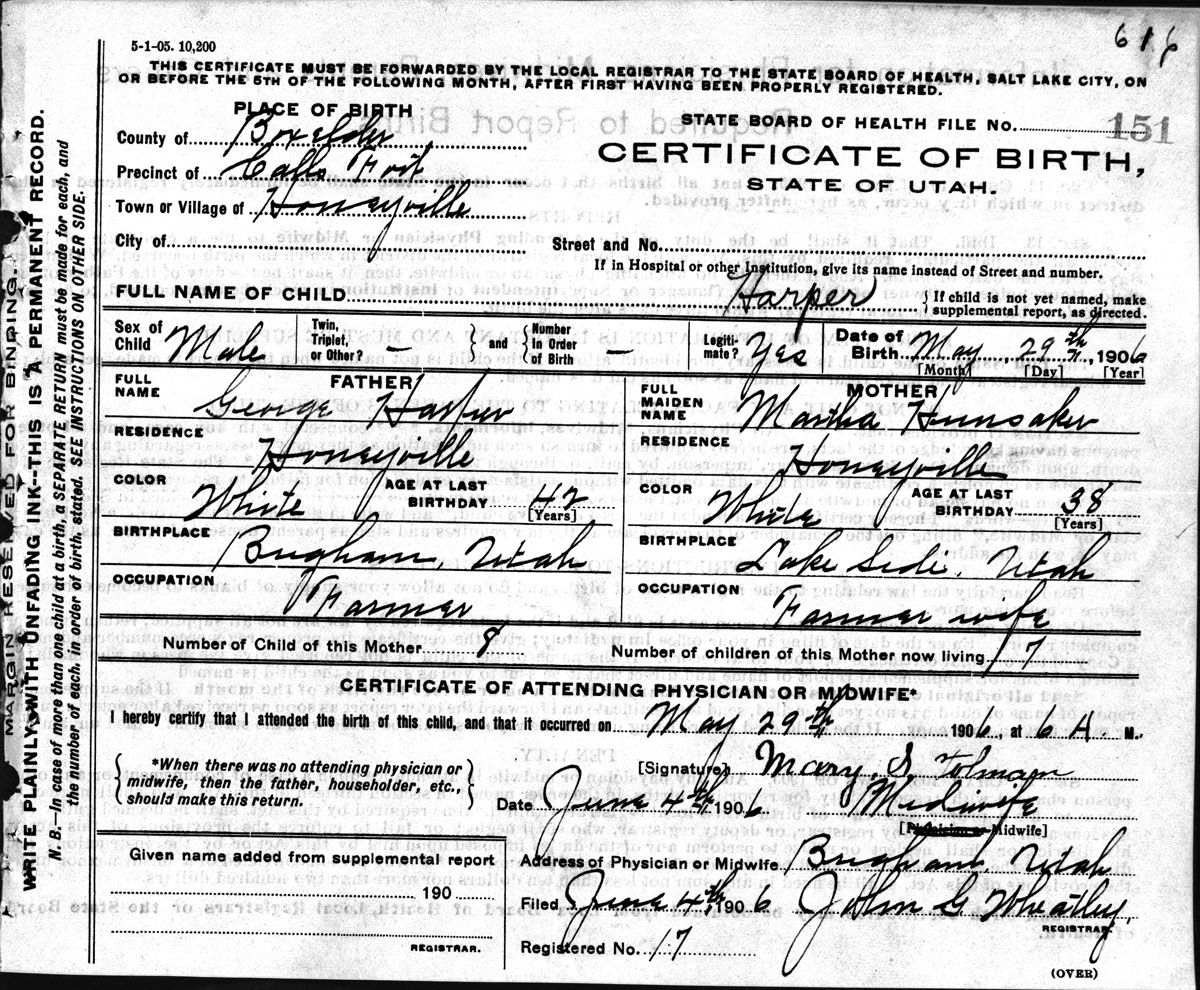 616
5-1-05. 10,200
THIS CERTIFICATE MUST BE FORWARDED BY THE LOCAL REGISTRAR TO THE STATE BOARD OF HEALTH, SALT LAKE CITY, ON
OR BEFORE THE 5TH OF THE FOLLOWING MONTH, AFTER FIRST HAVING BEEN PROPERLY REGISTERED.
PLACE OF BIRTH
STATE BOARD OF HEALTH FILE No. 151
County of Boxelder
CERTIFICATE OF BIRTH,
Precinct of Calls Fort
STATE OF UTAH.
Town or Village of Honeyville
City of
Street and No.
If in Hospital or other Institution, give its name instead of Street and number.
FULL NAME OF CHILD Harper { If child is not yet named, make
supplemental report, as directed.
Sex of Child Male
Twin, Triplet, or Other? –
{ and }
Number in Order of Birth –
Legiti-mate? Yes
Date of Birth May 29th, 1906
[Month] [Day] [Year]
FATHER
FULL NAME George Harper
RESIDENCE Honeyville
COLOR White AGE AT LAST BIRTHDAY 42 [Years]
BIRTHPLACE Brigham, Utah
OCCUPATION Farmer
MOTHER
FULL MAIDEN NAME Martha Hunsaker
RESIDENCE Honeyville
COLOR White AGE AT LAST BIRTHDAY 38 [Years]
BIRTHPLACE Lake Side, Utah
OCCUPATION Farmer wife
Number of Child of this Mother 8
Number of children of this Mother now living 7
CERTIFICATE OF ATTENDING PHYSICIAN OR MIDWIFE*
I hereby certify that I attended the birth of this child, and that it occurred on May 29th 1906, at 6 A M.
*When there was no attending physician or
midwife, then the father, householder, etc.,
should make this return.
[Signature] Mary S. Tolman
Date June 4th 1906 Midwife
[Physician or Midwife]
Given name added from supplemental report
190
REGISTRAR.
Address of Physician or Midwife Brigham, Utah
Filed June 4th, 1906 John G. Wheatley,
REGISTRAR.
Registered No. 17
(OVER)
MARGIN RESERVED FOR BINDING.
WRITE PLAINLY WITH UNFADING INK--THIS IS A PERMANENT RECORD.
N. B.—In case of more than one child at a birth, a SEPARATE RETURN must be made for each, and
the number of each, in order of birth, stated. SEE INSTRUCTIONS ON OTHER SIDE.